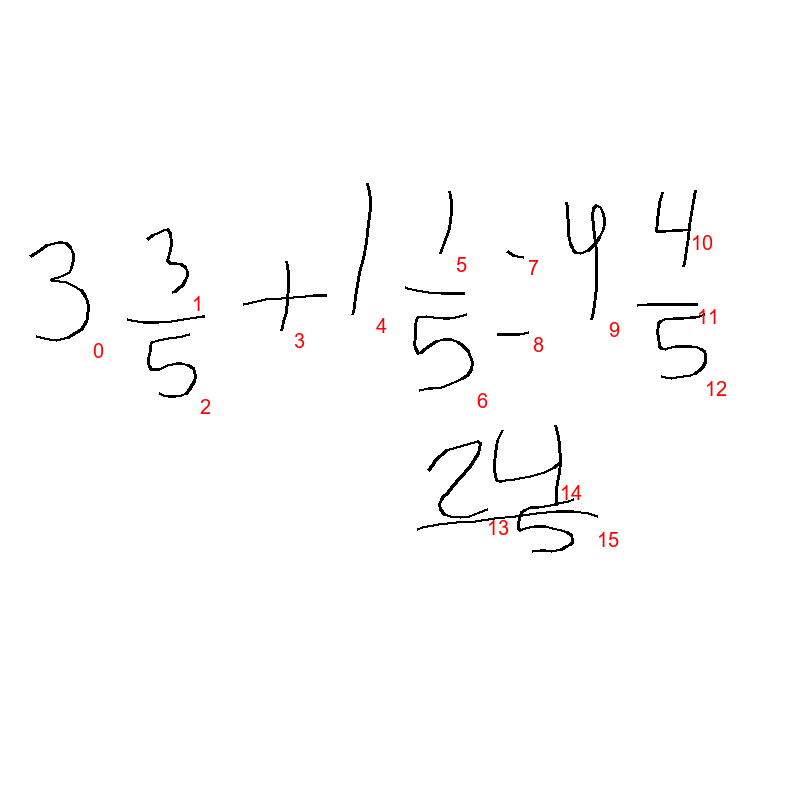 3 3/5 + 1 1/5 = 4 4/5
24/5
0 1 2 3 4 5 6 7 8 9 10 11 12 13 14 15